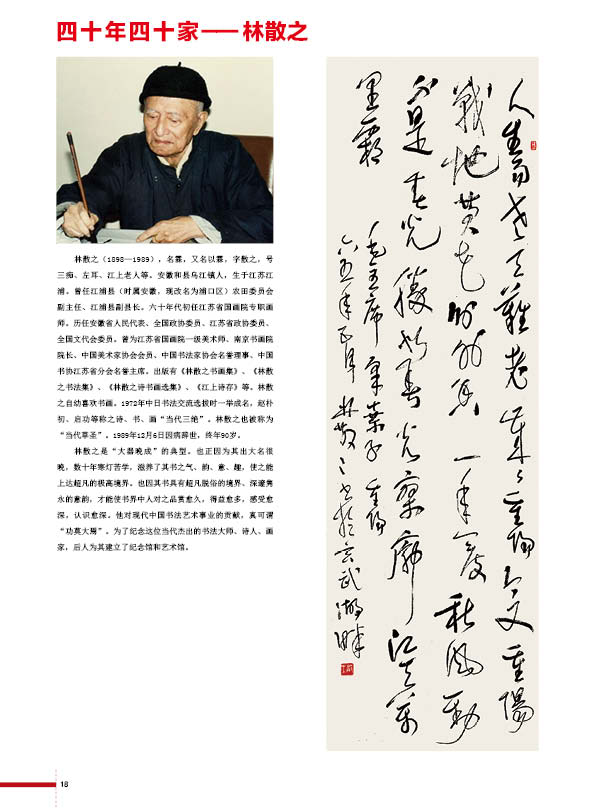 四十年四十家——林散之
林散之（1898—1989），名霖，又名以霖，字散之，号
三痴、左耳、江上老人等。安徽和县乌江镇人，生于江苏江
浦。曾任江浦县（时属安徽，现改名为浦口区）农田委员会
副主任、江浦县副县长。六十年代初任江苏省国画院专职画
师。历任安徽省人民代表、全国政协委员、江苏省政协委员、
全国文代会委员。曾为江苏省国画院一级美术师、南京书画院
院长、中国美术家协会会员、中国书法家协会名誉理事、中国
书协江苏省分会名誉主席。出版有《林散之书画集》、《林散
之书法集》、《林散之诗书画选集》、《江上诗存》等。林散
之自幼喜欢书画。1972年中日书法交流选拔时一举成名。赵朴
初、启功等称之诗、书、画“当代三绝”。林散之也被称为
“当代草圣”。1989年12月6日因病辞世，终年90岁。
林散之是“大器晚成”的典型。也正因为其出大名很
晚，数十年寒灯苦学，滋养了其书之气、韵、意、趣，使之能
上达超凡的极高境界。也因其书具有超凡脱俗的境界、深邃隽
永的意韵，才能使书界中人对之品赏愈久，得益愈多，感受愈
深，认识愈深。他对现代中国书法艺术事业的贡献，真可谓
“功莫大焉”。为了纪念这位当代杰出的书法大师、诗人、画
家，后人为其建立了纪念馆和艺术馆。
人生易老天難老歲歲重陽今又重陽
戰地黃花分外香一年一度秋風勁
不是春光勝似春光寥廓江天萬
里霜
毛主席采桑子重陽
六五年 月林散之書於玄武湖畔
18